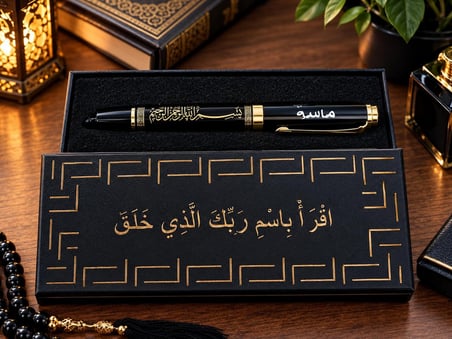 بسم الله الرحمن الرحيم
ماسة
اقْرَأْ بِاسْمِ رَبِّكَ الَّذِي خَلَقَ